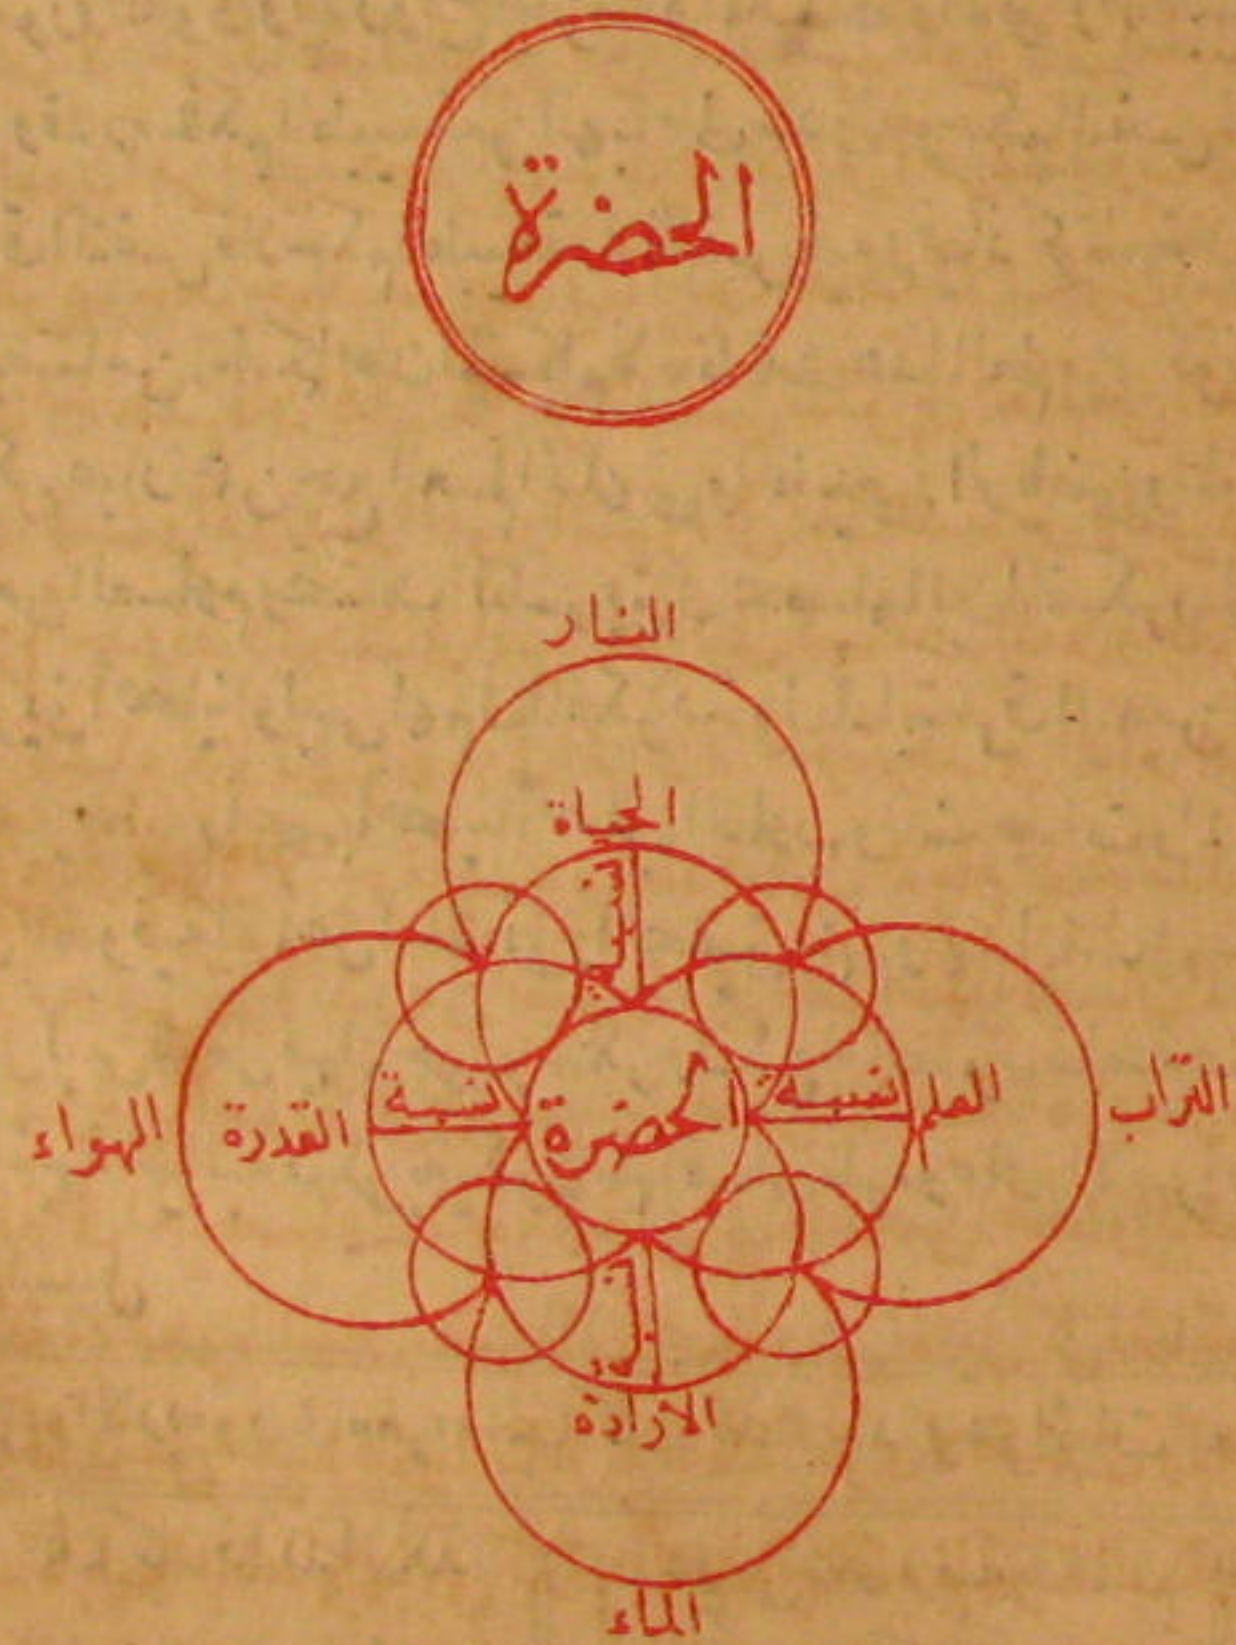 الحضرة
النار
الحياة
نسبة
التراب
العلم
نسبة
الحضرة
نسبة
القدرة
الهواء
نسبة
الارادة
الماء